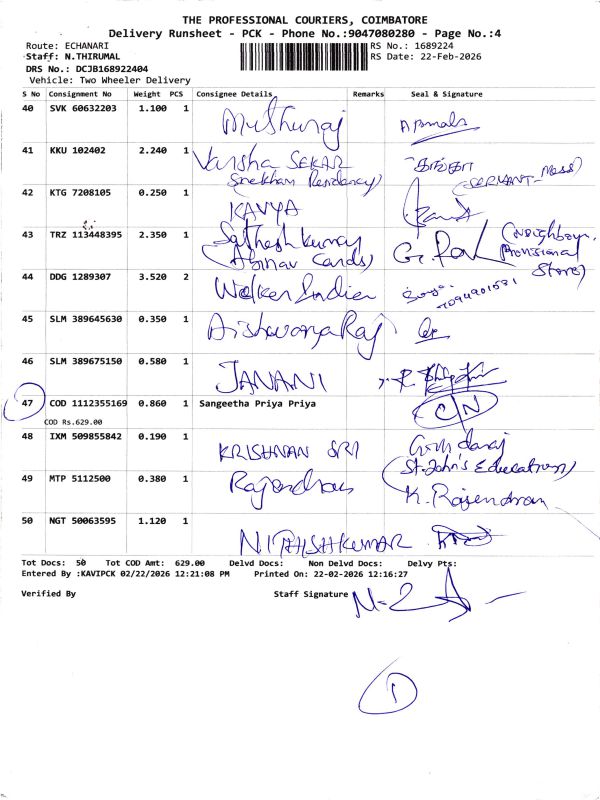 THE PROFESSIONAL COURIERS, COIMBATORE
Delivery Runsheet - PCK - Phone No.:9047080280 - Page No.:4
Route: ECHANARI
RS No.: 1689224
Staff: N.THIRUMAL
RS Date: 22-Feb-2026
DRS No.: DCJB168922404
Vehicle: Two Wheeler Delivery
S No Consignment No Weight PCS Consignee Details Remarks Seal & Signature
40 SVK 60632203 1.100 1 Muthuraj
41 KKU 102402 2.240 1 Varsha SEKAR
Sneekham Residency)
(SERVANT-Mess)
42 KTG 7208105 0.250 1 KAVYA
43 TRZ 113448395 2.350 1 Satheshkumar
(Abinav Cards)
(Neighbour
Provisional
Store)
44 DDG 1289307 3.520 2 Walker India
45 SLM 389645630 0.350 1 Aishwarya Raj
46 SLM 389675150 0.580 1 JANANI
47 COD 1112355169 0.860 1 Sangeetha Priya Priya C/N
COD Rs.629.00
48 IXM 509855842 0.190 1 KRISHNAN SRI Govindaraj
(St. John's Education)
49 MTP 5112500 0.380 1 Rajendran K. Rajendran
50 NGT 50063595 1.120 1 NITHISHKUMAR
Tot Docs: 50 Tot COD Amt: 629.00 Delvd Docs: Non Delvd Docs: Delvy Pts:
Entered By :KAVIPCK 02/22/2026 12:21:08 PM Printed On: 22-02-2026 12:16:27
Verified By Staff Signature
1